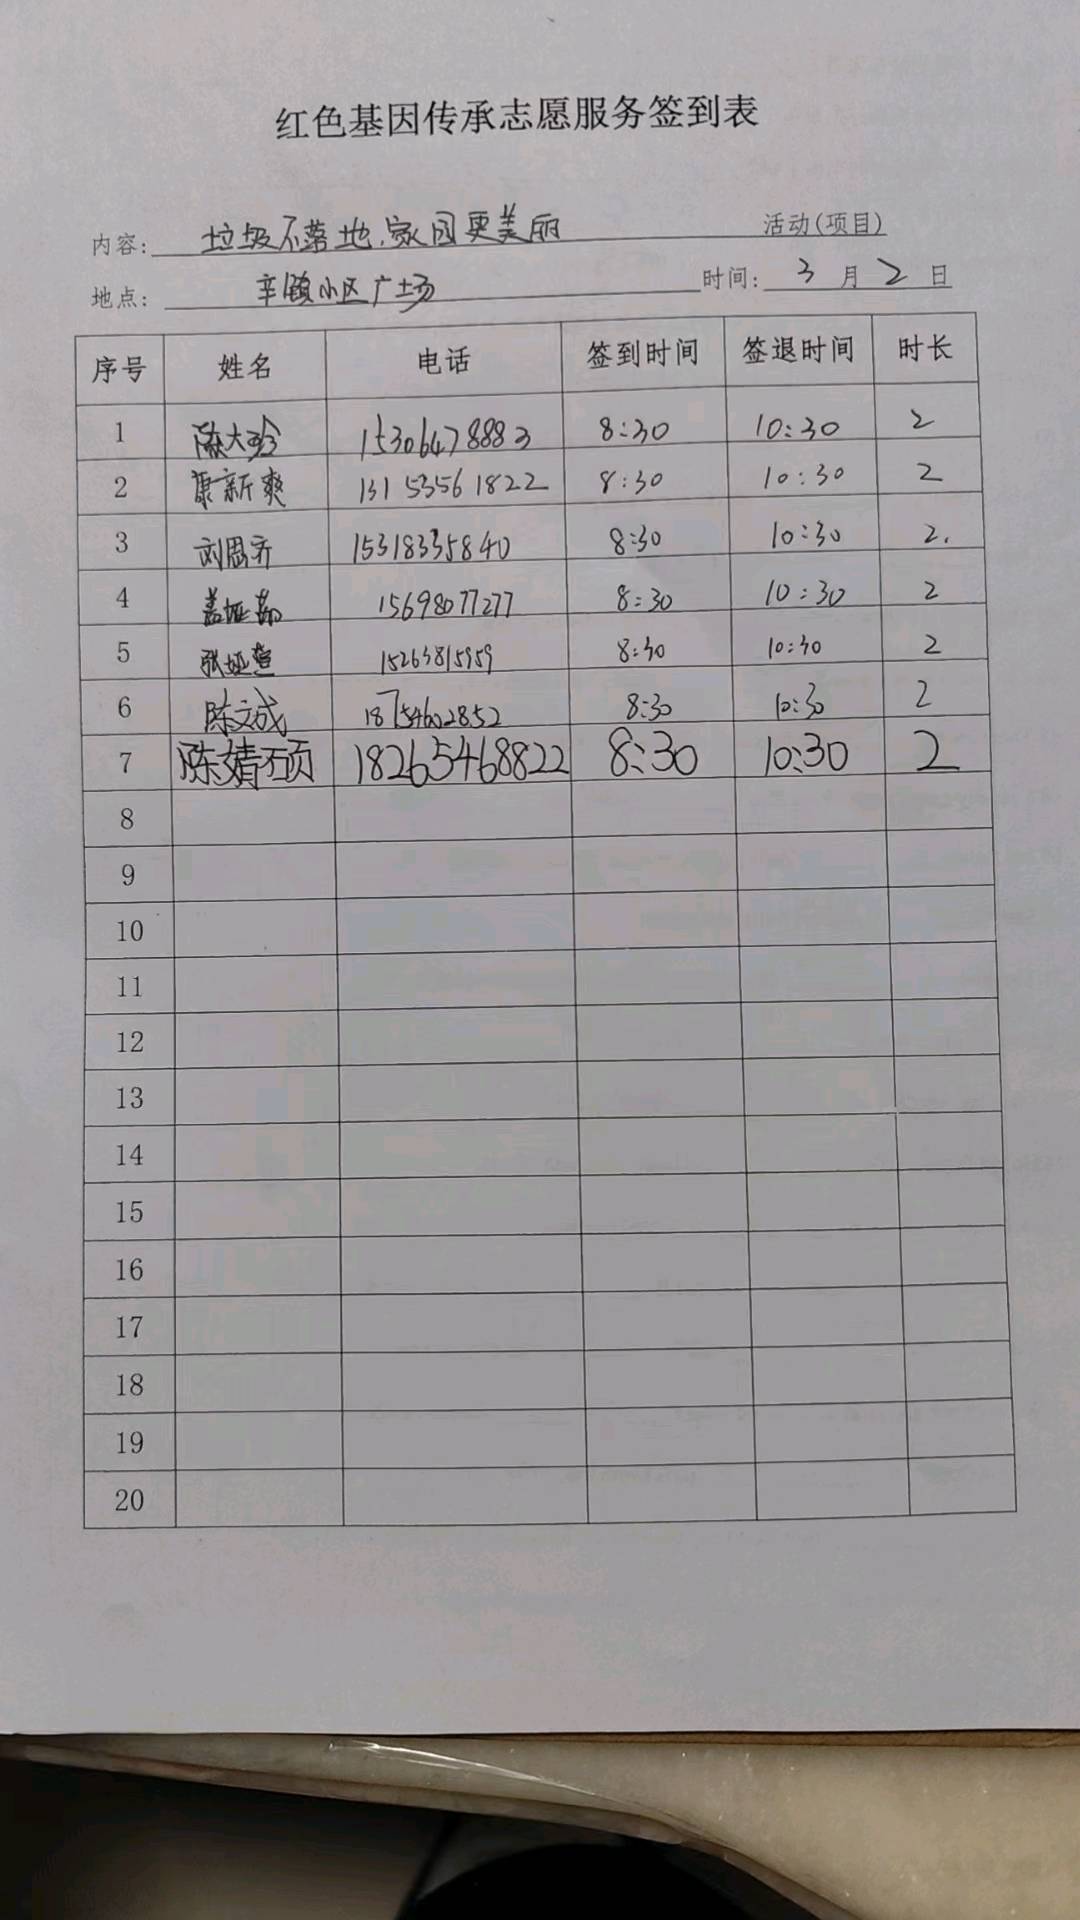 红色基因传承志愿服务签到表
内容: 垃圾不落地,家园更美丽 活动(项目)
地点: 辛镇小区广场 时间: 3 月 2 日
序号 姓名 电话 签到时间 签退时间 时长
1 陈大珍 15306478883 8:30 10:30 2
2 康新爽 13153561822 8:30 10:30 2
3 刘思齐 15318335840 8:30 10:30 2.
4 盖娅茹 15698077277 8:30 10:30 2
5 张娅萱 15263815959 8:30 10:30 2
6 陈文成 18754602852 8:30 10:30 2
7 陈婧硕 18265468822 8:30 10:30 2
8
9
10
11
12
13
14
15
16
17
18
19
20